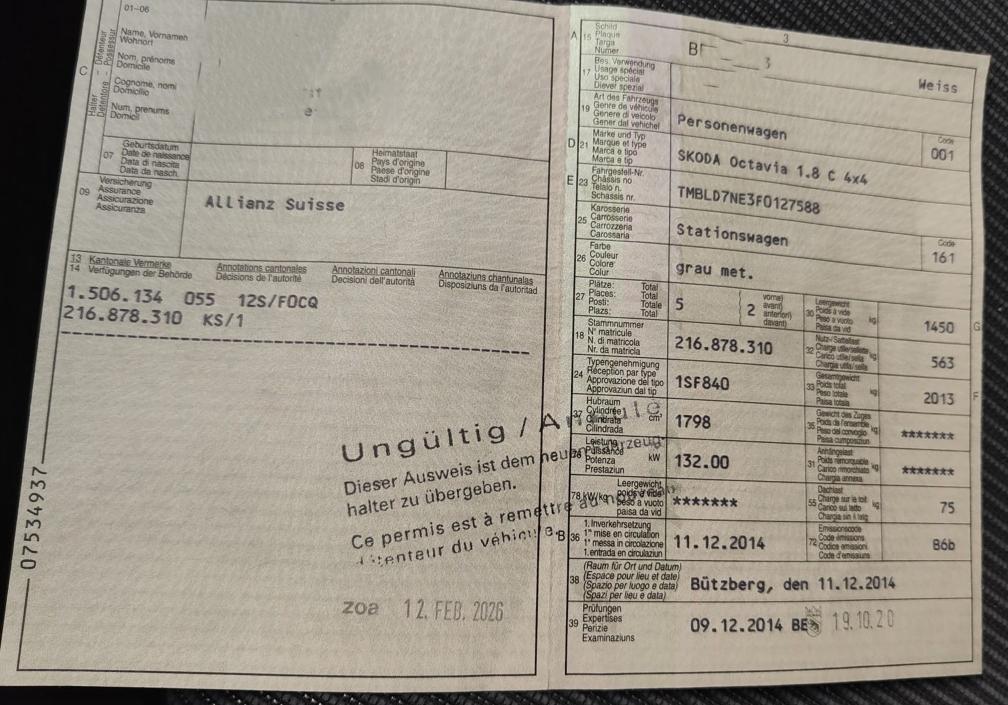 01-06
Halter - Détenteur
Detentore - Possessur
C
Name, Vornamen
Wohnort
Nom, prénoms
Domicile
Cognome, nomi
Domicilio
Num, prenums
Domicil
07
Geburtsdatum
Date de naissance
Data di nascita
Data da nasch.
08
Heimatstaat
Pays d'origine
Paese d'origine
Stadi d'origin
09
Versicherung
Assurance
Assicurazione
Assicuranza
Allianz Suisse
13 Kantonale Vermerke
14 Verfügungen der Behörde
Annotations cantonales
Décisions de l'autorité
Annotazioni cantonali
Decisioni dell'autorità
Annotaziuns chantunalas
Disposiziuns da l'autoritad
1.506.134 055 12S/FOCQ
216.878.310 KS/1
07534937
Ungültig /
Dieser Ausweis ist dem neuen
halter zu übergeben.
Ce permis est à remettre au
du véhicule.
zoa 12. FEB. 2026
3
A 15
Schild
Plaque
Targa
Numer
3
17
Bes. Verwendung
Usage spécial
Uso speciale
Diever spezial
Weiss
19
Art des Fahrzeugs
Genre de véhicule
Genere di veicolo
Gener dal vehichel
Personenwagen
Code
001
D 21
Marke und Typ
Marque et type
Marca e tipo
Marca e tip
SKODA Octavia 1.8 C 4x4
E 23
Fahrgestell-Nr.
Châssis no
Telaio n.
Schassis nr.
TMBLD7NE3F0127588
25
Karosserie
Carrosserie
Carrozzeria
Carossaria
Stationswagen
Code
161
26
Farbe
Couleur
Colore
Colur
grau met.
27
Plätze: Total
Places: Total
Posti: Totale
Plazs: Total
5
2
vorne)
avant)
anteriori)
davant)
30
Leergewicht
Poids à vide
Peso a vuoto
Paisa da vid
kg
1450
G
18
Stammnummer
N° matricule
N. di matricola
Nr. da matricla
216.878.310
32
Nutz-/Sattellast
Charge utile/sellette
Carico utile/sella
Chargia utila/sella
kg
563
24
Typengenehmigung
Réception par type
Approvazione del tipo
Approvaziun dal tip
1SF840
33
Gesamtgewicht
Poids total
Peso totale
Paisa totala
kg
2013
F
37
Hubraum
Cylindrée
Cilindrata
Cilindrada
cm³
1798
35
Gewicht des Zuges
Poids de l'ensemble
Peso del convoglio
Paisa cumposiziun
kg
*******
Leistung
Puissance
Potenza
Prestaziun
kW
132.00
31
Anhängelast
Poids remorquable
Carico rimorchiato
Chargia annexa
kg
*******
78 kW/kg
Leergewicht
poids à vide
peso a vuoto
paisa da vid
*******
55
Dachlast
Charge sur le toit
Carico sul tetto
Chargia sin il tetg
kg
75
B 36
1. Inverkehrsetzung
1re mise en circulation
1a messa in circolazione
1. entrada en circulaziun
11.12.2014
72
Emissionscode
Code émissions
Codice emissioni
Code d'emissiuns
B6b
38
(Raum für Ort und Datum)
(Espace pour lieu et date)
(Spazio per luogo e data)
(Spazi per lieu e data)
Bützberg, den 11.12.2014
39
Prüfungen
Expertises
Perizie
Examinaziuns
09.12.2014 BE 19.10.20